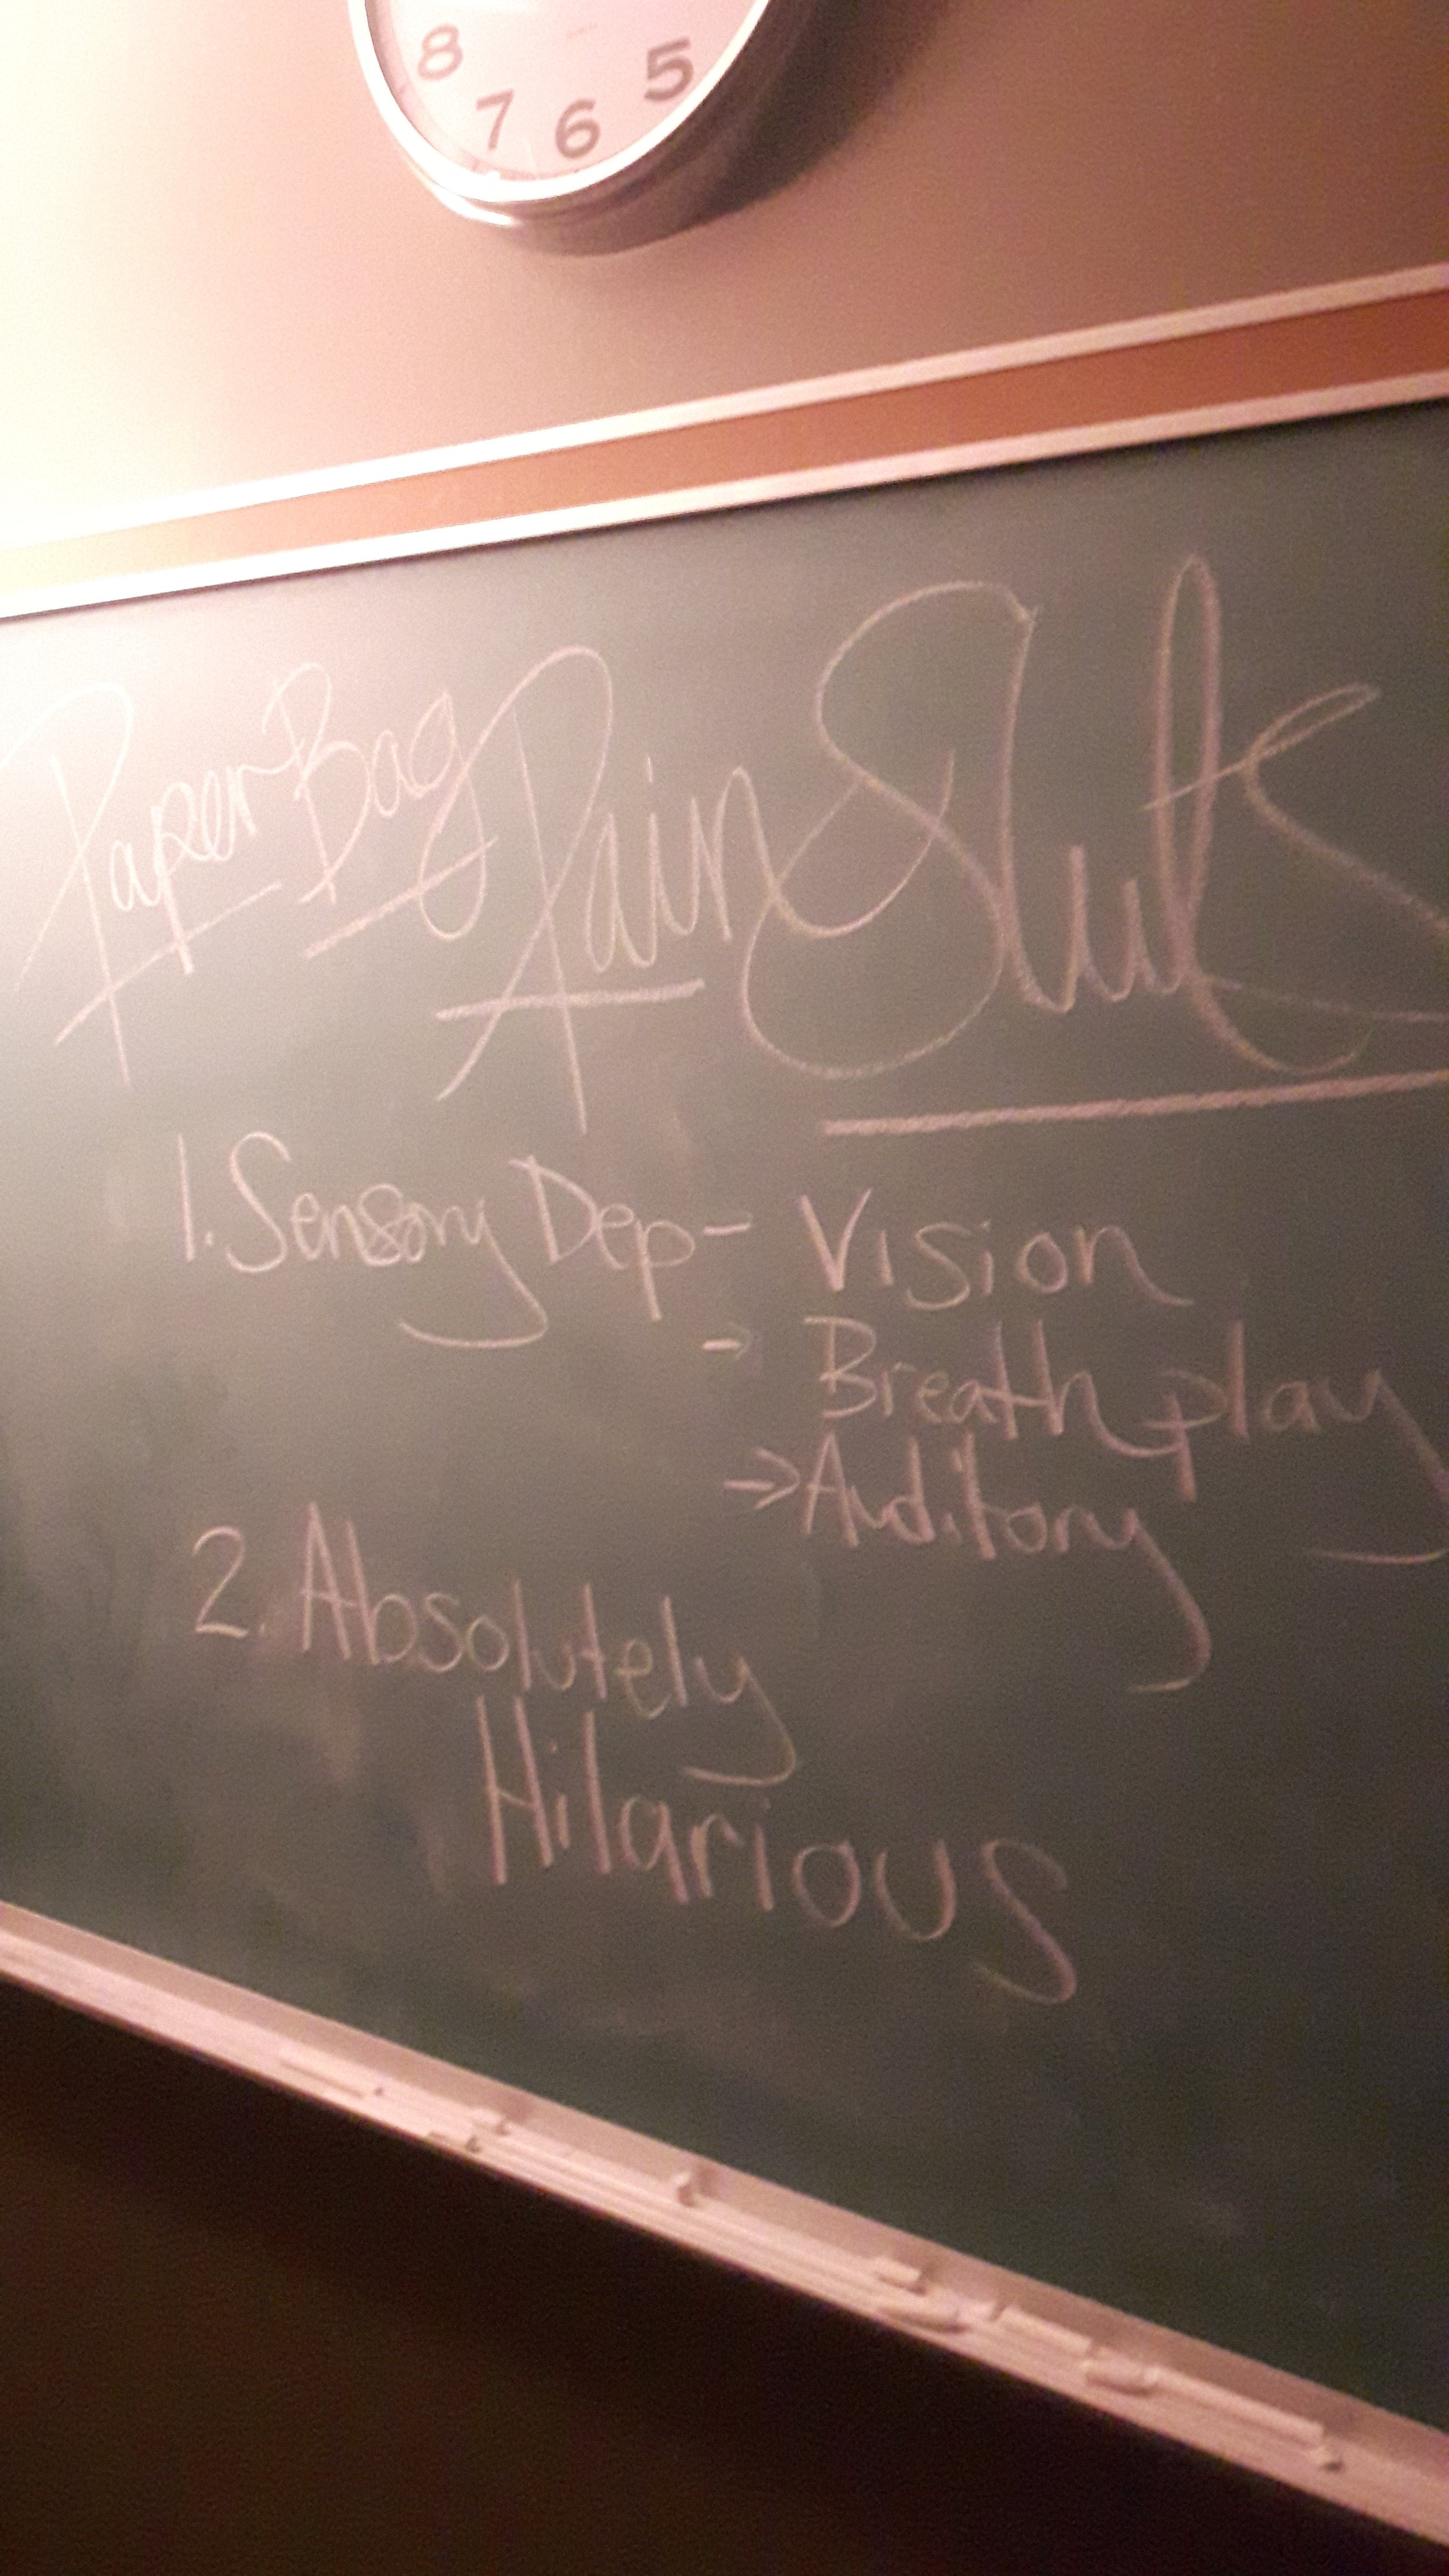 8 7 6 5
Paper Bag Pain Sluts
1. Sensory Dep - Vision
→ Breath play
→ Auditory
2. Absolutely
Hilarious